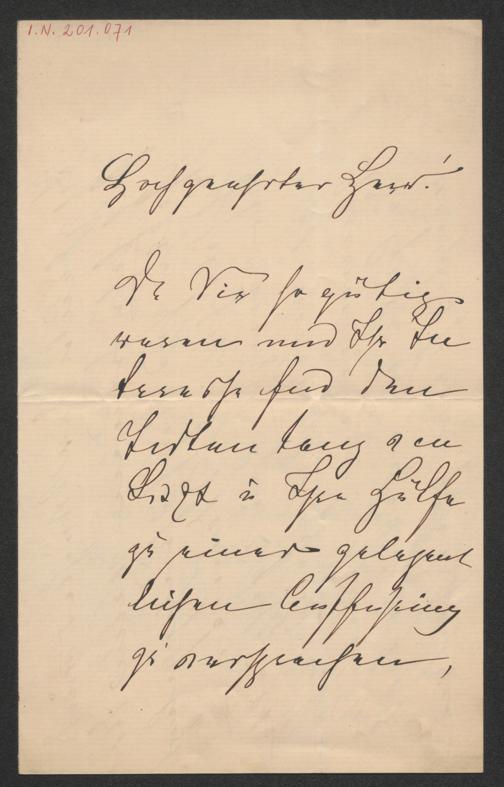 I.N. 201.071
Hochgeehrter Herr!
Da Sie so gütig
waren und Ihr In
teresse für den
Todtentanz von
Liszt u Ihre Hülfe
zu einer gelegent
lichen Aufführung
zu versprechen,